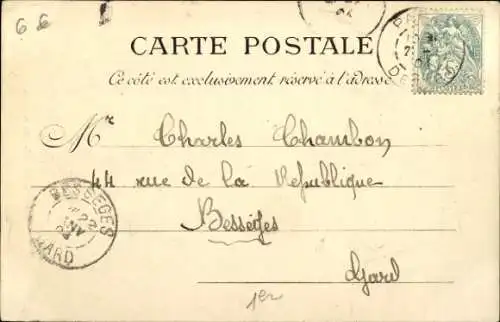 6 6
CARTE POSTALE
Ce côté est exclusivement réservé à l'adresse
Mr Charles Chambon
44 rue de la République
Bessèges
Gard
BESSEGES
22
GARD
1er